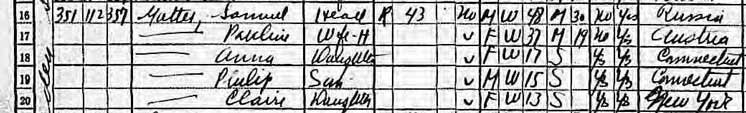 16 351 112 357 Matter, Samuel Head R 43 No M W 48 M 30 No Yes Russia
17 — Pauline Wife-H v F W 37 M 19 No Ys Austria
18 — Anna Daughter v F W 17 S Ys Ys Connecticut
19 — Philip Son v M W 15 S Ys Ys Connecticut
20 — Claire Daughter v F W 13 S Ys Ys New York